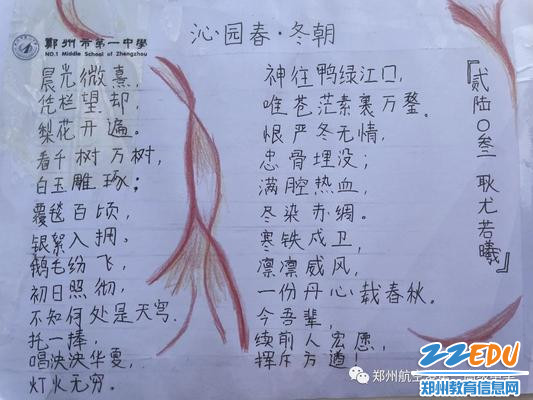 鄭州市第一中學
NO.1 Middle School of Zhengzhou
沁园春·冬朝
晨光微熹，
凭栏望却，
梨花开遍。
看千树万树，
白玉雕琢；
覆毯百顷，
银絮入拥。
鹅毛纷飞，
初日照彻，
不知何处是天穹.
托一捧，
唱泱泱华夏，
灯火无穷。
神往鸭绿江口，
唯苍茫素裹万鍪。
恨严冬无情，
忠骨埋没；
满腔热血，
冬染赤绸。
寒铁戍卫，
凛凛威风，
一份丹心载春秋。
今吾辈，
续前人宏愿，
挥斥方遒！
『贰陆〇叁 耿尤若曦』
郑州航空
ZZEDU
郑州教育信息网